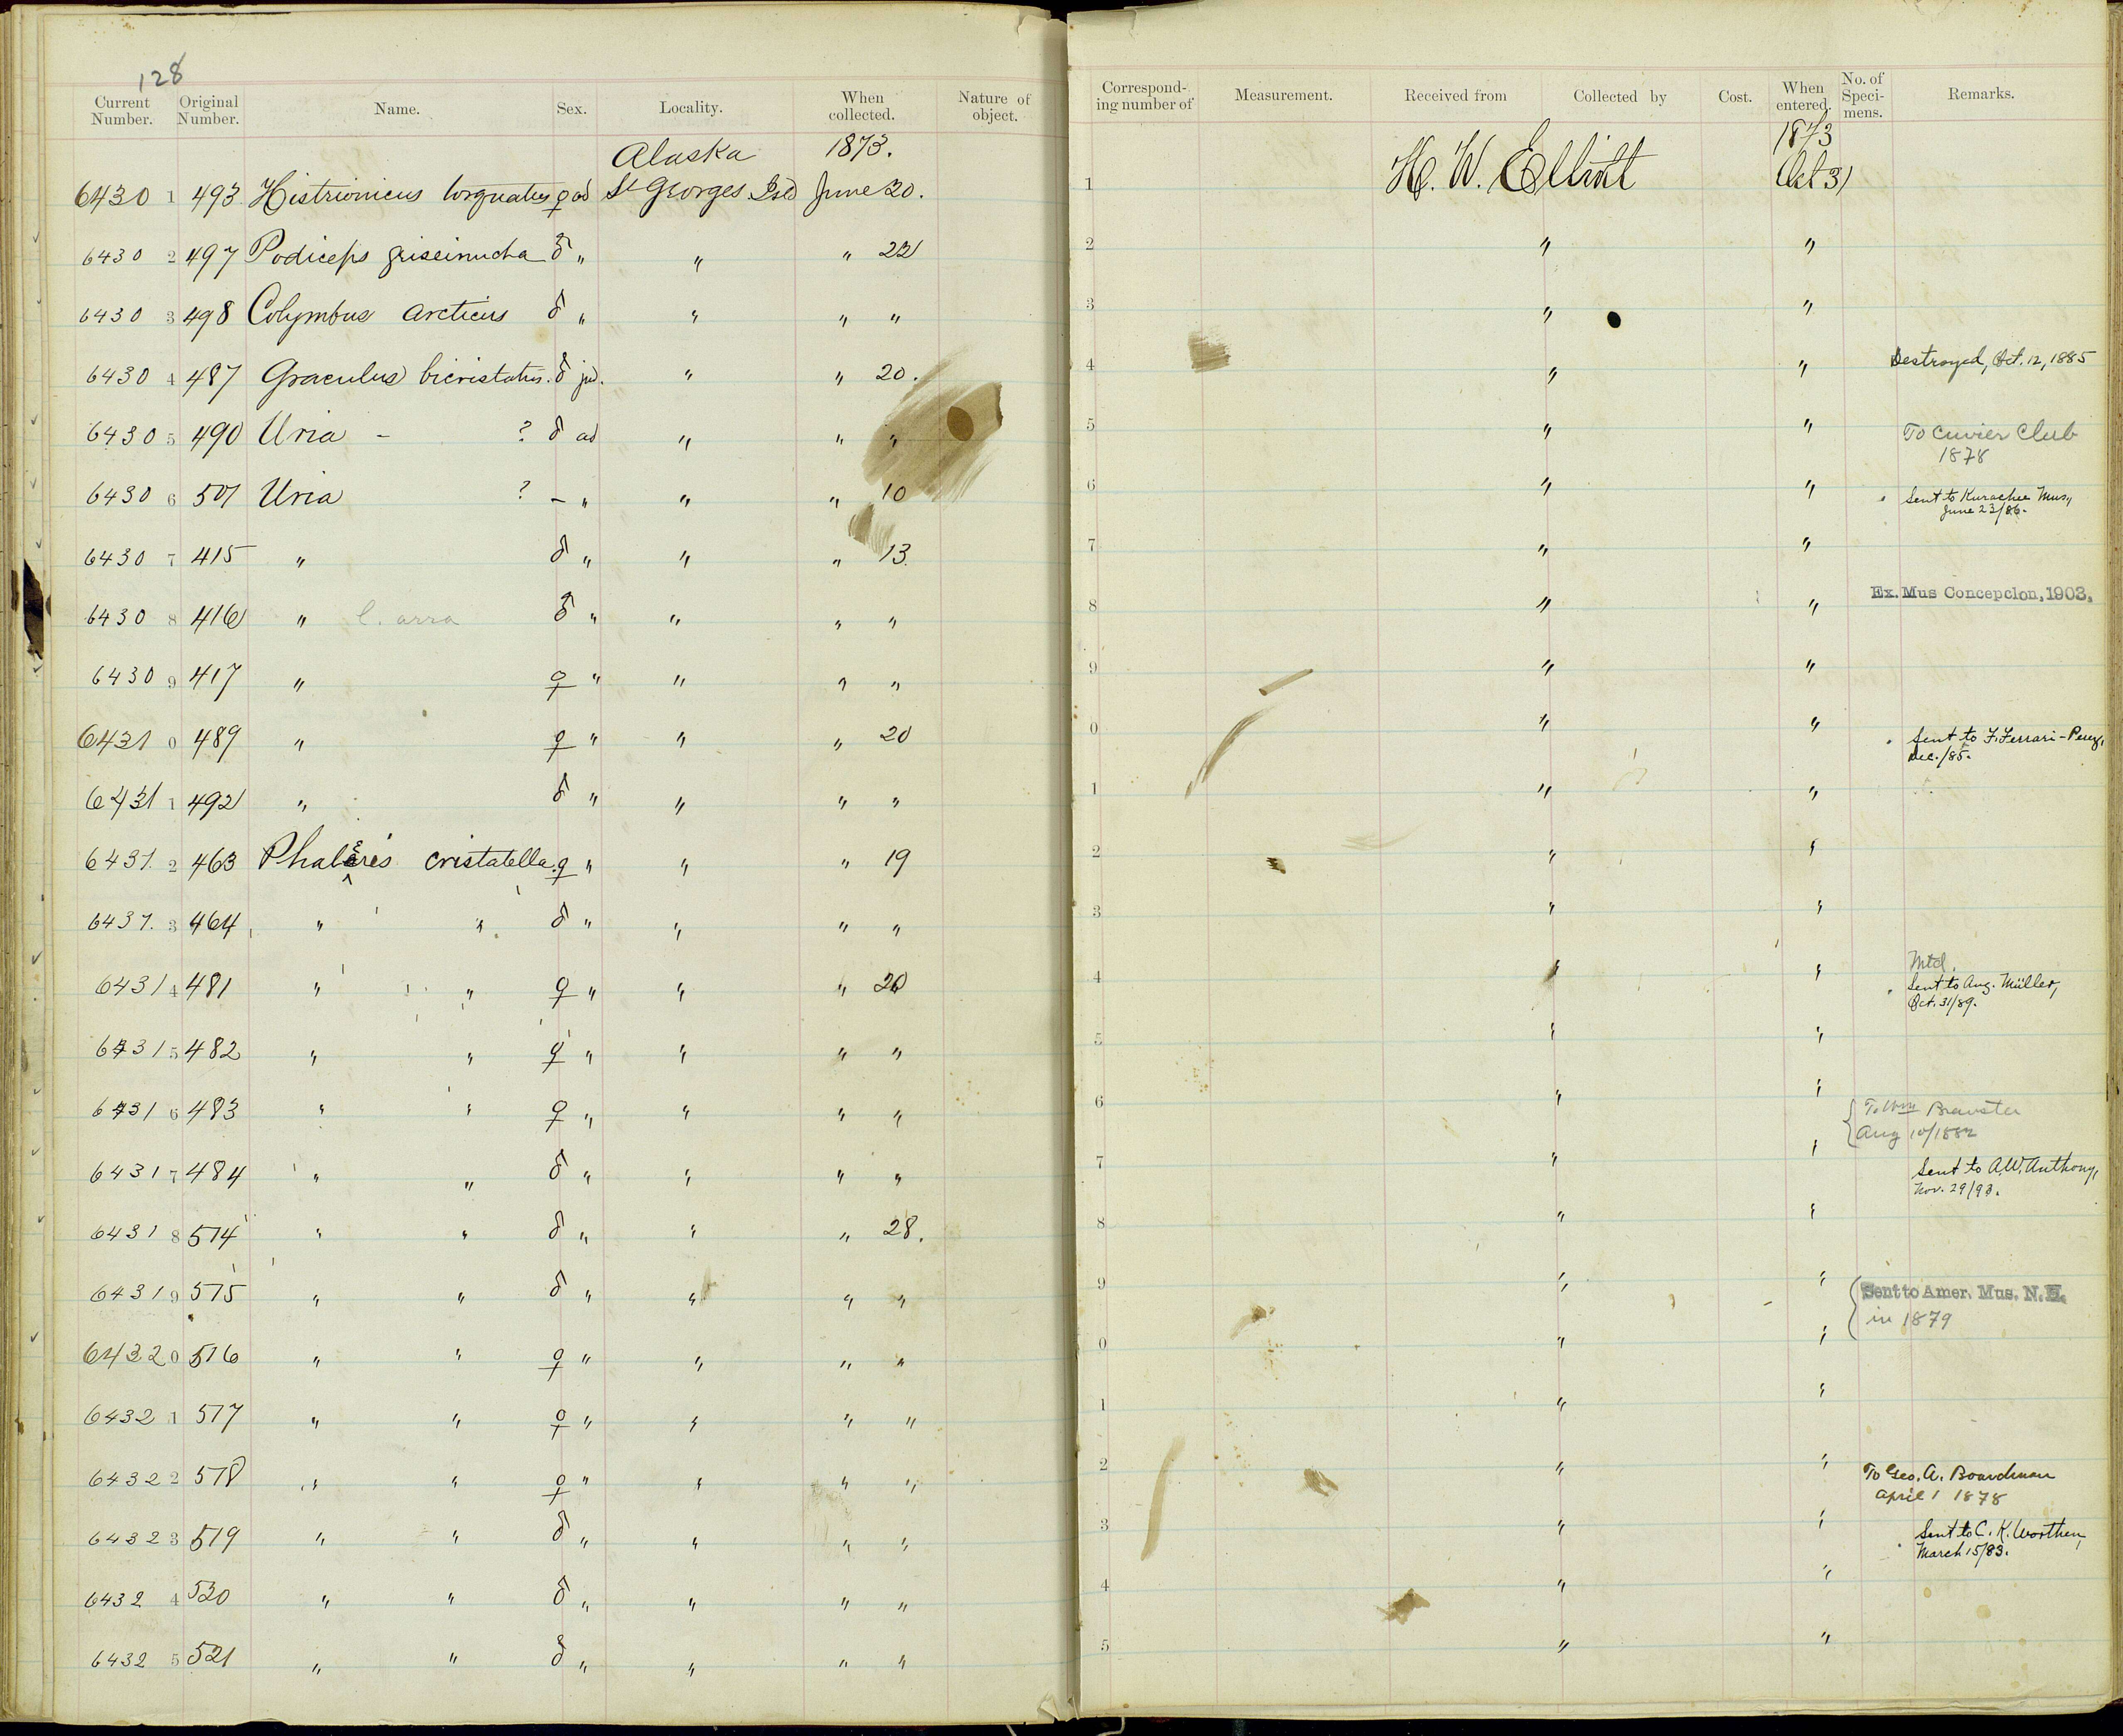 128
Current Number. Original Number. Name. Sex. Locality. When collected. Nature of object.
Alaska 1873.
6430 1 493 Histrionicus torquatus ♀ ad St Georges Isld June 20.
6430 2 497 Podiceps griseinucha ♂ " " " 22
6430 3 498 Colymbus arcticus ♂ " " " "
6430 4 487 Graculus bicristatus. ♂ jud. " " 20.
6430 5 490 Uria - ? ♂ ad " " "
6430 6 501 Uria ? - " " " 10
6430 7 415 " ♂ " " " 13.
6430 8 416 " l. arra ♂ " " " "
6430 9 417 " ♀ " " " "
6431 0 489 " ♀ " " " 20
6431 1 492 " ♂ " " " "
6431. 2 463 Phaleris cristatella. ♀ " " " 19
6431. 3 464 " " ♂ " " " "
6431 4 481 " " ♀ " " " 20
6431 5 482 " " ♀ " " " "
6431 6 483 " " ♀ " " " "
6431 7 484 " " ♂ " " " "
6431 8 514 " " ♂ " " " 28.
6431 9 515 " " ♂ " " " "
6432 0 516 " " ♀ " " " "
6432 1 517 " " ♀ " " " "
6432 2 518 " " ♀ " " " "
6432 3 519 " " ♂ " " " "
6432 4 520 " " ♂ " " " "
6432 5 521 " " ♂ " " " "
Correspond-ing number of Measurement. Received from Collected by Cost. When entered. No. of Speci-mens. Remarks.
1873
1 H. W. Elliott Oct 31
2 " "
3 " "
4 " " Destroyed, Oct. 12, 1885
5 " " To Cuvier Club
1878
6 " " Sent to Kurachee Mus.,
June 23/86.
7 " "
8 " " Ex. Mus Concepcion, 1903.
9 " "
0 " " Sent to F. Ferrari-Perez,
Dec./85.
1 " "
2 " "
3 " "
4 " " Mtd.
Sent to Aug. Müller,
Oct. 31/89.
5 " "
6 " " To Wm Brewster
Aug 10/1882
7 " " Sent to A.W. Anthony,
Nov. 29/93.
8 " "
9 " " Sent to Amer. Mus. N.H.
in 1879
0 " "
1 " "
2 " " To Geo. A. Boardman
April 1 1878
3 " " Sent to C. K. Worthen,
March 15/83.
4 " "
5 " "